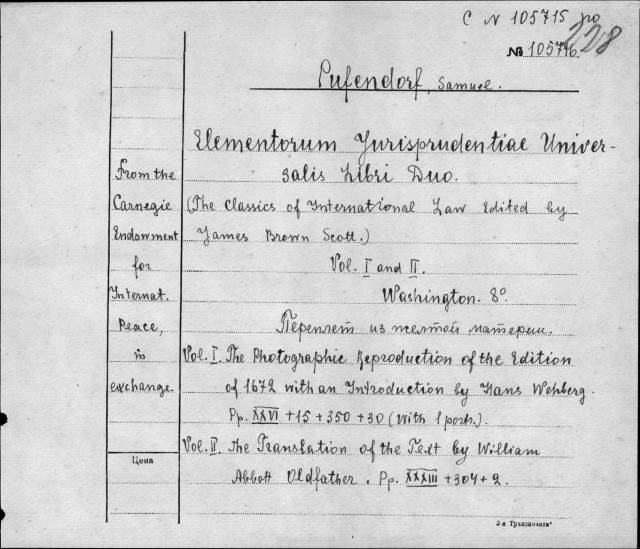 С N 105715 по
№ 105716
228
Pufendorf, Samuel.
Elementorum Jurisprudentiae Univer-
salis Libri Duo.
(The Classics of International Law Edited by
James Brown Scott.)
Vol. I and II.
Washington. 8°.
Переплет из желтой материи.
Vol. I. The Photographic Reproduction of the Edition
of 1672 with an Introduction by Hans Wehberg.
Pp. XXVI + 15 + 350 + 30 (With 1 portr.).
Vol. II. The Translation of the Text by William
Abbott Oldfather. Pp. XXXIII + 304 + 2.
From the
Carnegie
Endowment
for
Internat.
Peace,
in
exchange.
Цена
3-я Гракпечать